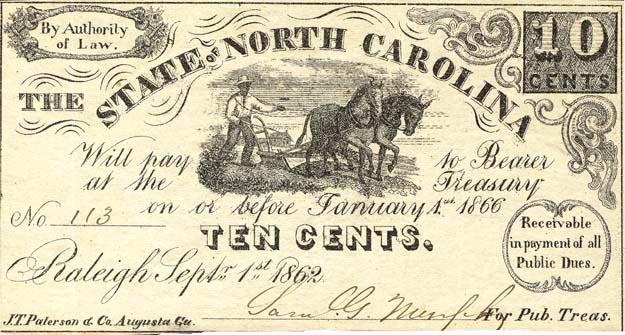 By Authority
of Law.
10
CENTS
THE
STATE OF NORTH CAROLINA
Will pay to Bearer
at the Treasury
No. 113
on or before January 1st. 1866
TEN CENTS.
Receivable
in payment of all
Public Dues.
Raleigh Septr. 1st 1862
J.T. Paterson & Co. Augusta Ga.
For Pub. Treas.